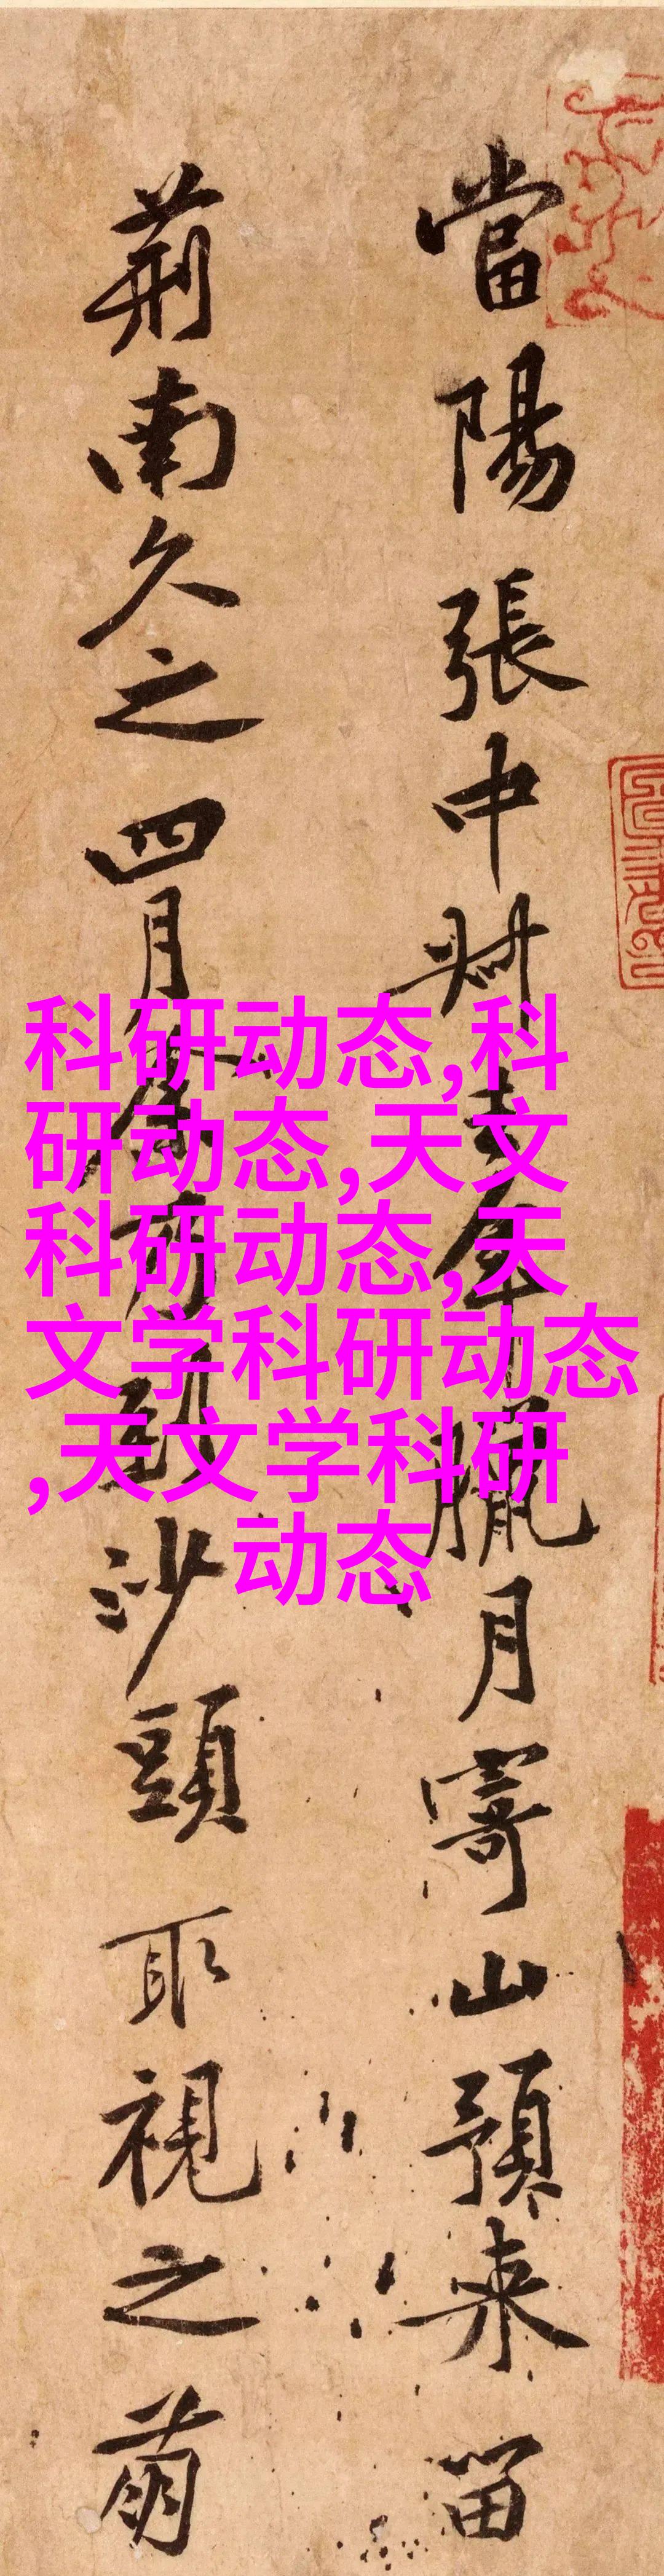 當陽張中叔去年臈月寄山預來留
荊南久之四月余乃到沙頭取視之萌
科研动态,科
研动态,天文
科研动态,天
文学科研动态
,天文学科研
动态